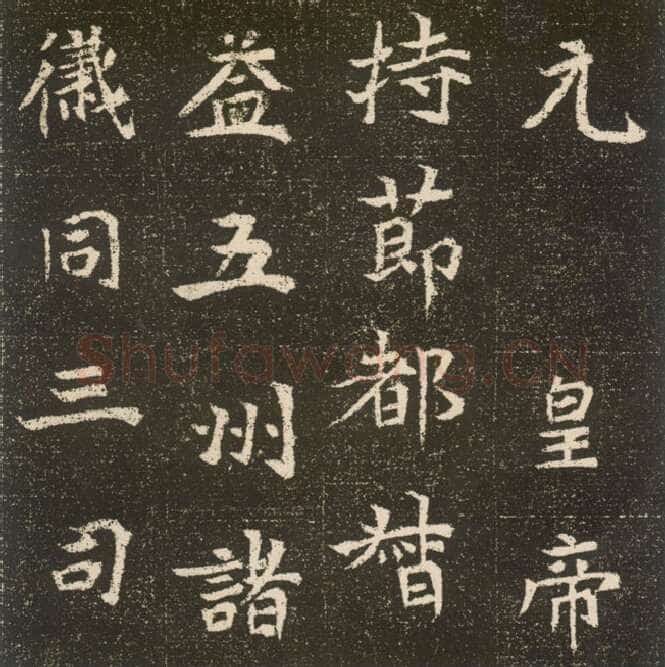 元 皇帝
持節都督
益五州諸
儀同三司
Shufawang.CN